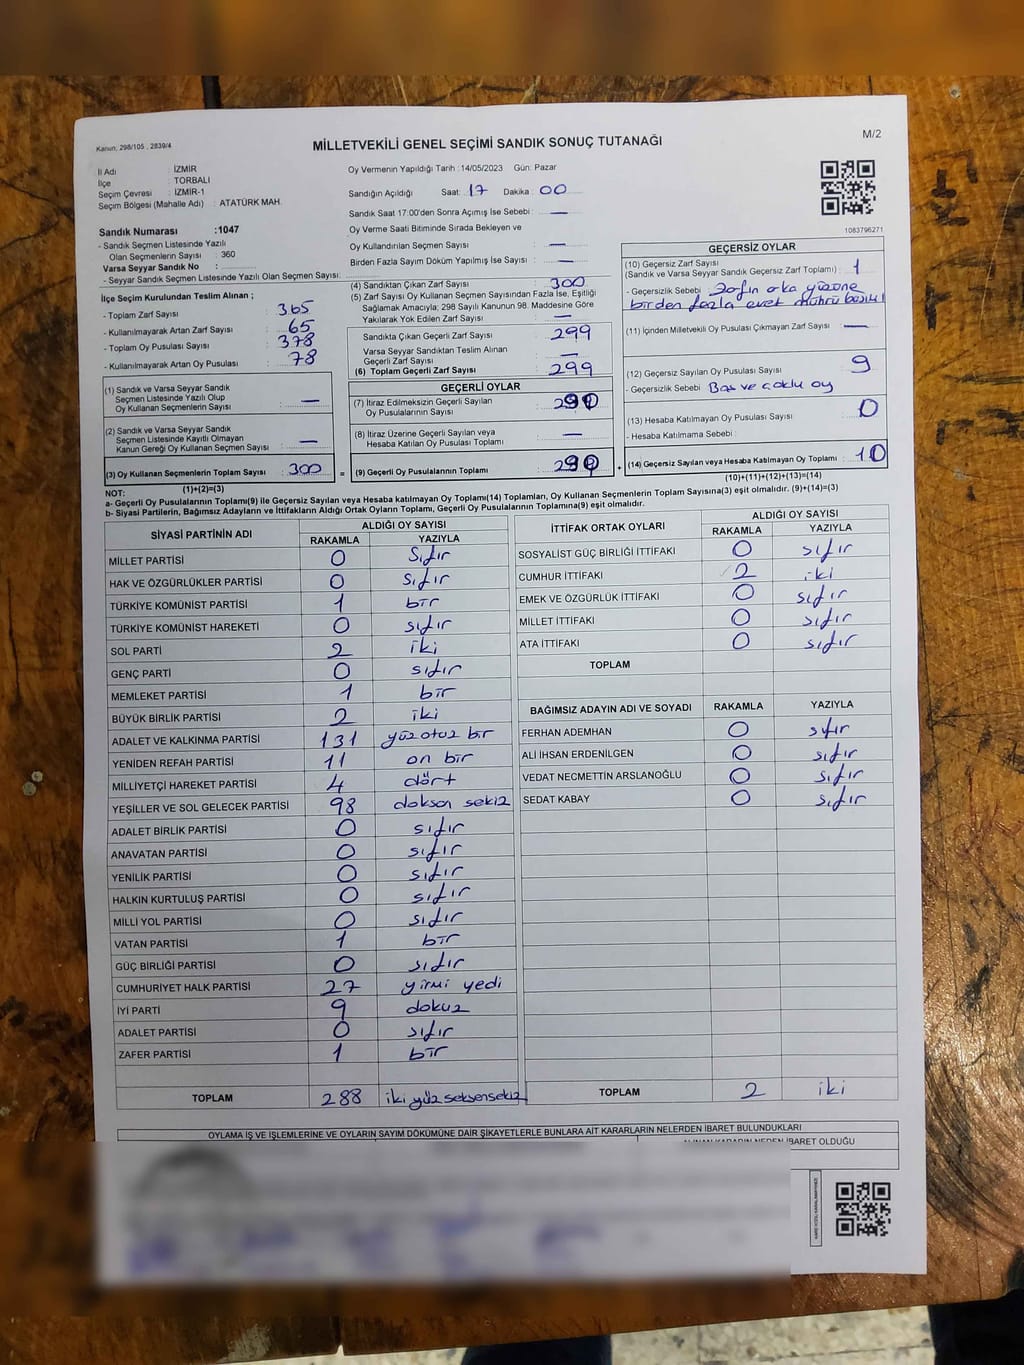 Kanun; 298/105 , 2839/4
MİLLETVEKİLİ GENEL SEÇİMİ SANDIK SONUÇ TUTANAĞI
M/2
İl Adı : İZMİR
İlçe : TORBALI
Seçim Çevresi : İZMİR-1
Seçim Bölgesi (Mahalle Adı) : ATATÜRK MAH.
Oy Vermenin Yapıldığı Tarih :14/05/2023 Gün: Pazar
Sandığın Açıldığı Saat: 17 Dakika: 00
Sandık Saat 17:00'den Sonra Açımış İse Sebebi : —
Oy Verme Saati Bitiminde Sırada Bekleyen ve
Oy Kullandırılan Seçmen Sayısı : —
Birden Fazla Sayım Döküm Yapılmış İse Sayısı : —
1083796271
Sandık Numarası :1047
- Sandık Seçmen Listesinde Yazılı
Olan Seçmenlerin Sayısı : 360
Varsa Seyyar Sandık No :
- Seyyar Sandık Seçmen Listesinde Yazılı Olan Seçmen Sayısı:
İlçe Seçim Kurulundan Teslim Alınan ;
- Toplam Zarf Sayısı : 365
- Kullanılmayarak Artan Zarf Sayısı : 65
- Toplam Oy Pusulası Sayısı : 378
- Kullanılmayarak Artan Oy Pusulası : 78
(1) Sandık ve Varsa Seyyar Sandık
Seçmen Listesinde Yazılı Olup
Oy Kullanan Seçmenlerin Sayısı : —
(2) Sandık ve Varsa Seyyar Sandık
Seçmen Listesinde Kayıtlı Olmayan
Kanun Gereği Oy Kullanan Seçmen Sayısı : —
(3) Oy Kullanan Seçmenlerin Toplam Sayısı : 300
(1)+(2)=(3)
(4) Sandıktan Çıkan Zarf Sayısı : 300
(5) Zarf Sayısı Oy Kullanan Seçmen Sayısından Fazla İse, Eşitliği
Sağlamak Amacıyla; 298 Sayılı Kanunun 98. Maddesine Göre
Yakılarak Yok Edilen Zarf Sayısı : —
Sandıkta Çıkan Geçerli Zarf Sayısı : 299
Varsa Seyyar Sandıktan Teslim Alınan
Geçerli Zarf Sayısı : —
(6) Toplam Geçerli Zarf Sayısı : 299
GEÇERLİ OYLAR
(7) İtiraz Edilmeksizin Geçerli Sayılan
Oy Pusulalarının Sayısı : 290
(8) İtiraz Üzerine Geçerli Sayılan veya
Hesaba Katılan Oy Pusulası Toplamı : —
= (9) Geçerli Oy Pusulalarının Toplamı : 290
GEÇERSİZ OYLAR
(10) Geçersiz Zarf Sayısı
(Sandık ve Varsa Seyyar Sandık Geçersiz Zarf Toplamı) : 1
- Geçersizlik Sebebi : Zarfın arka yüzüne
birden fazla evet mührü
(11) İçinden Milletvekili Oy Pusulası Çıkmayan Zarf Sayısı : —
(12) Geçersiz Sayılan Oy Pusulası Sayısı : 9
- Geçersizlik Sebebi : Boş ve çoklu oy
(13) Hesaba Katılmayan Oy Pusulası Sayısı : 0
- Hesaba Katılmama Sebebi :
+ (14) Geçersiz Sayılan veya Hesaba Katılmayan Oy Toplamı : 10
(10)+(11)+(12)+(13)=(14)
NOT:
a- Geçerli Oy Pusulalarının Toplamı(9) ile Geçersiz Sayılan veya Hesaba katılmayan Oy Toplamı(14) Toplamları, Oy Kullanan Seçmenlerin Toplam Sayısına(3) eşit olmalıdır. (9)+(14)=(3)
b- Siyasi Partilerin, Bağımsız Adayların ve İttifakların Aldığı Ortak Oyların Toplamı, Geçerli Oy Pusulalarının Toplamına(9) eşit olmalıdır.
SİYASİ PARTİNİN ADI ALDIĞI OY SAYISI
RAKAMLA YAZIYLA
MİLLET PARTİSİ 0 Sıfır
HAK VE ÖZGÜRLÜKLER PARTİSİ 0 sıfır
TÜRKİYE KOMÜNİST PARTİSİ 1 bir
TÜRKİYE KOMÜNİST HAREKETİ 0 sıfır
SOL PARTİ 2 iki
GENÇ PARTİ 0 sıfır
MEMLEKET PARTİSİ 1 bir
BÜYÜK BİRLİK PARTİSİ 2 iki
ADALET VE KALKINMA PARTİSİ 131 yüz otuz bir
YENİDEN REFAH PARTİSİ 11 on bir
MİLLİYETÇİ HAREKET PARTİSİ 4 dört
YEŞİLLER VE SOL GELECEK PARTİSİ 98 doksan sekiz
ADALET BİRLİK PARTİSİ 0 sıfır
ANAVATAN PARTİSİ 0 sıfır
YENİLİK PARTİSİ 0 sıfır
HALKIN KURTULUŞ PARTİSİ 0 sıfır
MİLLİ YOL PARTİSİ 0 sıfır
VATAN PARTİSİ 1 bir
GÜÇ BİRLİĞİ PARTİSİ 0 sıfır
CUMHURİYET HALK PARTİSİ 27 yirmi yedi
İYİ PARTİ 9 dokuz
ADALET PARTİSİ 0 sıfır
ZAFER PARTİSİ 1 bir
TOPLAM 288 iki yüz seksensekiz
İTTİFAK ORTAK OYLARI ALDIĞI OY SAYISI
RAKAMLA YAZIYLA
SOSYALİST GÜÇ BİRLİĞİ İTTİFAKI 0 sıfır
CUMHUR İTTİFAKI 2 iki
EMEK VE ÖZGÜRLÜK İTTİFAKI 0 sıfır
MİLLET İTTİFAKI 0 sıfır
ATA İTTİFAKI 0 sıfır
TOPLAM
BAĞIMSIZ ADAYIN ADI VE SOYADI RAKAMLA YAZIYLA
FERHAN ADEMHAN 0 sıfır
ALİ İHSAN ERDENİLGEN 0 sıfır
VEDAT NECMETTİN ARSLANOĞLU 0 sıfır
SEDAT KABAY 0 sıfır
TOPLAM 2 iki
OYLAMA İŞ VE İŞLEMLERİNE VE OYLARIN SAYIM DÖKÜMÜNE DAİR ŞİKAYETLERLE BUNLARA AİT KARARLARIN NELERDEN İBARET BULUNDUKLARI
ALINAN KARARIN NEDEN İBARET OLDUĞU